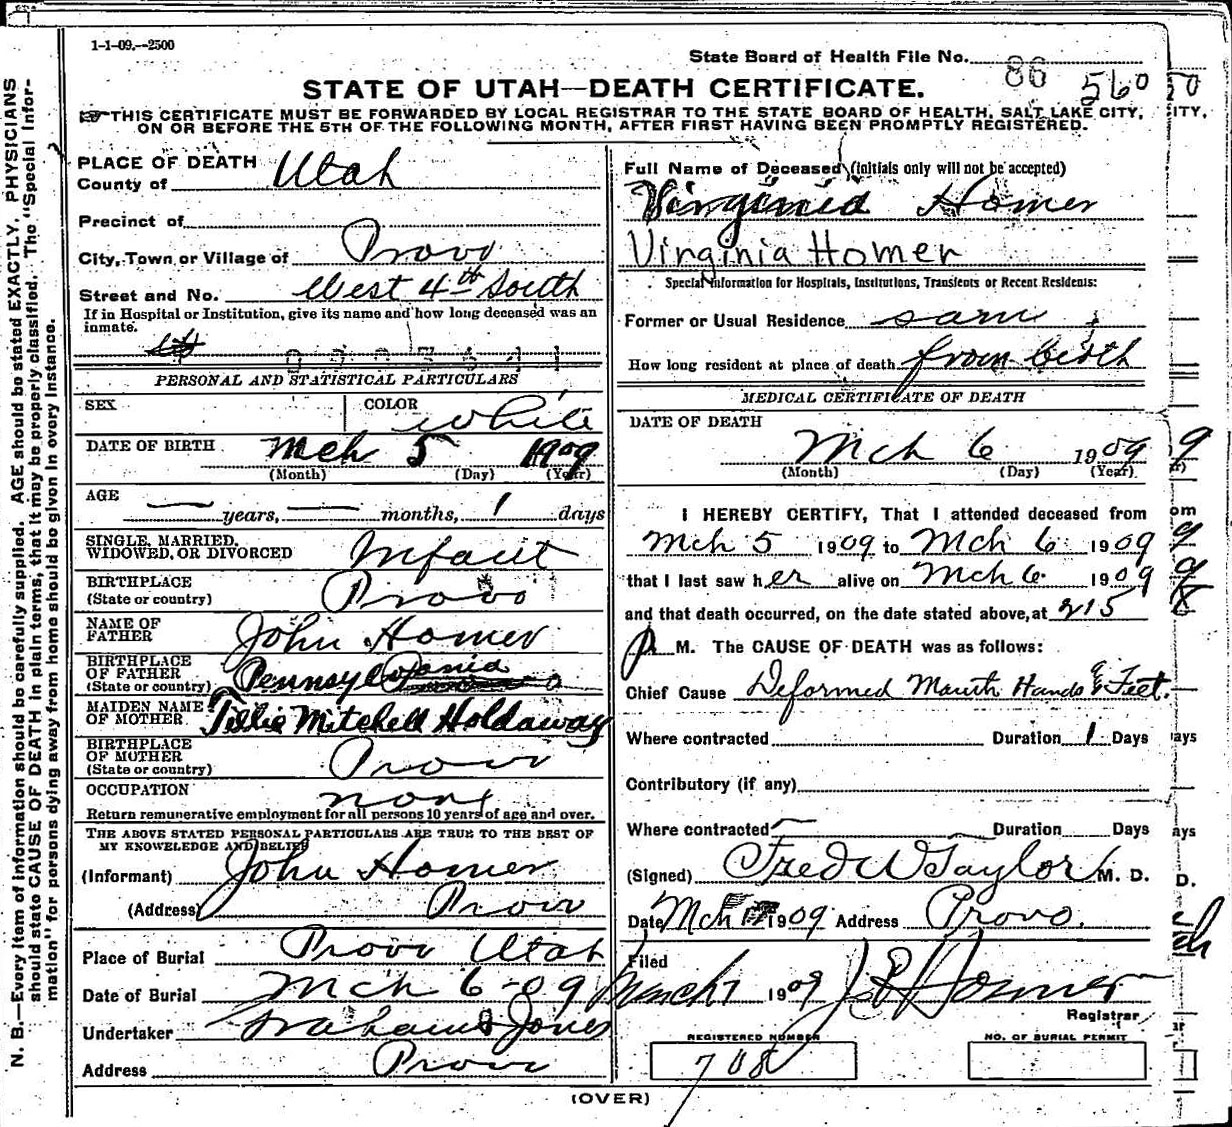 1-1-09.--2500
State Board of Health File No. 86 560
STATE OF UTAH—DEATH CERTIFICATE.
☞THIS CERTIFICATE MUST BE FORWARDED BY LOCAL REGISTRAR TO THE STATE BOARD OF HEALTH, SALT LAKE CITY,
ON OR BEFORE THE 5TH OF THE FOLLOWING MONTH, AFTER FIRST HAVING BEEN PROMPTLY REGISTERED.
N. B.—Every item of information should be carefully supplied. AGE should be stated EXACTLY. PHYSICIANS
should state CAUSE OF DEATH in plain terms, that it may be properly classified. The "Special Infor-
mation" for persons dying away from home should be given in every instance.
PLACE OF DEATH
County of Utah
Precinct of
City, Town or Village of Provo
Street and No. West 4th South
If in Hospital or Institution, give its name and how long deceased was an
inmate.
PERSONAL AND STATISTICAL PARTICULARS
SEX COLOR White
DATE OF BIRTH Mch 5 1909
(Month) (Day) (Year)
AGE
— years, — months, 1 days
SINGLE, MARRIED,
WIDOWED, OR DIVORCED Infant
BIRTHPLACE
(State or country) Provo
NAME OF
FATHER John Homer
BIRTHPLACE
OF FATHER
(State or country) Pennsylvania
MAIDEN NAME
OF MOTHER Tillie Mitchell Holdaway
BIRTHPLACE
OF MOTHER
(State or country) Provo
OCCUPATION none
Return remunerative employment for all persons 10 years of age and over.
THE ABOVE STATED PERSONAL PARTICULARS ARE TRUE TO THE BEST OF
MY KNOWLEDGE AND BELIEF
(Informant) John Homer
(Address) Provo
Place of Burial Provo Utah
Date of Burial Mch 6-09
Undertaker Graham & Jones
Address Provo
Full Name of Deceased (initials only will not be accepted)
Virginia Homer
Virginia Homer
Special Information for Hospitals, Institutions, Transients or Recent Residents:
Former or Usual Residence same
How long resident at place of death from birth
MEDICAL CERTIFICATE OF DEATH
DATE OF DEATH
Mch 6 1909
(Month) (Day) (Year)
I HEREBY CERTIFY, That I attended deceased from
Mch 5 1909 to Mch 6 1909
that I last saw her alive on Mch 6 1909
and that death occurred, on the date stated above, at 215
P M. The CAUSE OF DEATH was as follows:
Chief Cause Deformed Mouth Hands & Feet.
Where contracted Duration 1 Days
Contributory (if any)
Where contracted — Duration — Days
(Signed) Fred W Taylor M. D.
Date Mch 1909 Address Provo.
Filed
March 7 1909 J E Homer
Registrar
REGISTERED NUMBER NO. OF BURIAL PERMIT
708
(OVER)